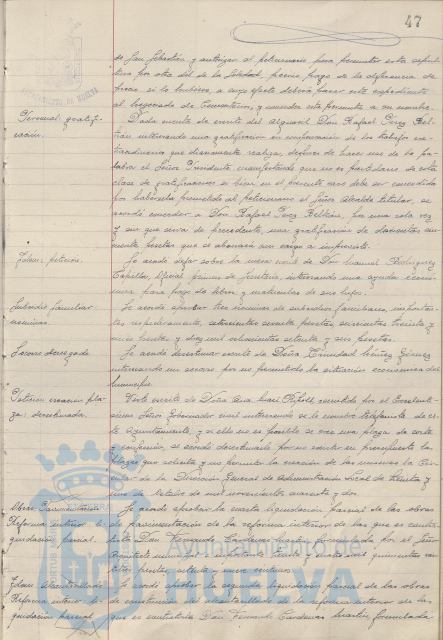 47
de San Sebastián y autorizar al peticionario para permutar esta
por otra del de la Soledad, previo pago de la diferencia de
precio si lo hubiere, a cuyo efecto deberá pasar este expediente
al Negociado de Cementerios, y conceder esta permuta a su nombre.
Personal gratifi-
cación.
Dada cuenta de escrito del Alguacil Don Rafael Pérez Bel-
trán interesando una gratificación en compensación de los trabajos ex-
traordinarios que diariamente realiza, después de hacer uso de la pa-
labra el Señor Presidente manifestando que no es partidario de esta
clase de gratificaciones si bien en el presente caso debe ser concedida
por habérsela prometido al peticionario el Señor Alcalde titular, se
acordó conceder a Don Rafael Pérez Beltrán, por una sola vez
y sin que sirva de precedente, una gratificación de doscientas cin-
cuenta pesetas que se abonará con cargo a imprevistos.
Idem: petición.
Se acordó dejar sobre la mesa escrito de Don Manuel Rodríguez
interesando una ayuda econó-
mica para pago de libros y matrículas de sus hijos.
Subsidio familiar
nóminas.
Se acordó aprobar tres nóminas de subsidios familiares, importan-
tes respectivamente, setecientas setenta pesetas, seiscientas treinta y
seis pesetas.
Socorro denegado
Se acordó desestimar escrito de Doña Trinidad Gómez
interesando un socorro por no permitirlo la situación económica del
municipio.
Petición creación pla-
za: desestimada.
Visto escrito de Doña Ana Mari remitido por el Excelentí-
simo Señor Gobernador civil interesando se le nombre telefonista de es-
te Ayuntamiento, y si ello no es posible se cree una plaza de corte
y confección, se acordó desestimarlo por no existir en presupuesto la
plaza que solicita y no permitir la creación de las mismas la Cir-
cular de la Dirección General de Administración Local de treinta y
uno de de mil novecientos cuarenta y dos.
Obras Pavimentación
Reforma interior li-
quidación parcial.
Se acordó aprobar la cuarta liquidación parcial de las obras
de pavimentación de la reforma interior de las que es contra-
tista Don Fernando Cárdenas formulada por el Señor
Arquitecto
pesetas
Idem Alcantarillado
Reforma interior li-
quidación parcial
Se acordó aprobar la segunda liquidación parcial de las obras
de construcción de alcantarillado de la reforma interior de las
que es contratista Don Fernando Cárdenas formulada
Ayuntamiento de
HUELVA